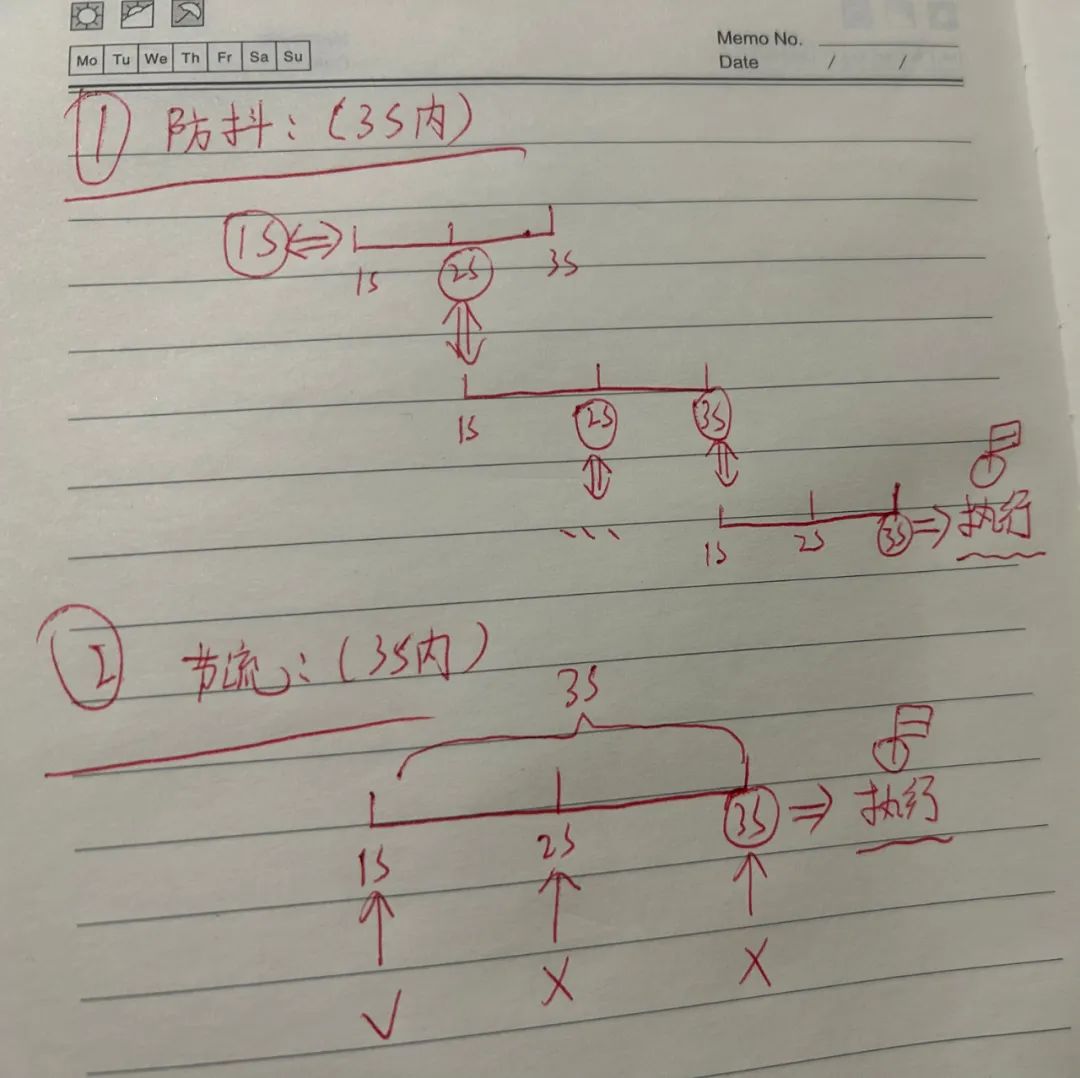 Mo Tu We Th Fr Sa Su
Memo No.
Date / /
① 防抖：(3S内)
1S
1S 2S 3S
1S 2S 3S
... 1S 2S 3S ⇒ 执行
② 节流：(3S内)
3S
1S 2S 3S ⇒ 执行
√ X X